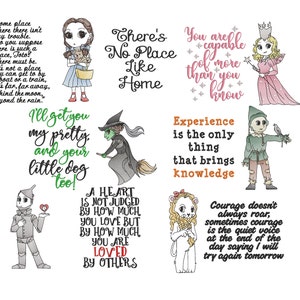 ome place
here there isn't
ny trouble.
o you suppose
ere is such a
lace, Toto?
here must be.
's not a place
ou can get to by
boat or a train.
s far, far away,
hind the moon,
yond the rain."
There's
No Place
Like
Home
You are
capable
of more
than you
know
I'll get you
my pretty,
and your
little dog
too!
Experience
is the only
thing
that brings
knowledge
A HEART
IS NOT JUDGED
BY HOW MUCH
YOU LOVE BUT
BY HOW MUCH
YOU ARE
LOVED
BY OTHERS
Courage doesn't
always roar,
sometimes courage
is the quiet voice
at the end of the
day saying I will
try again tomorrow